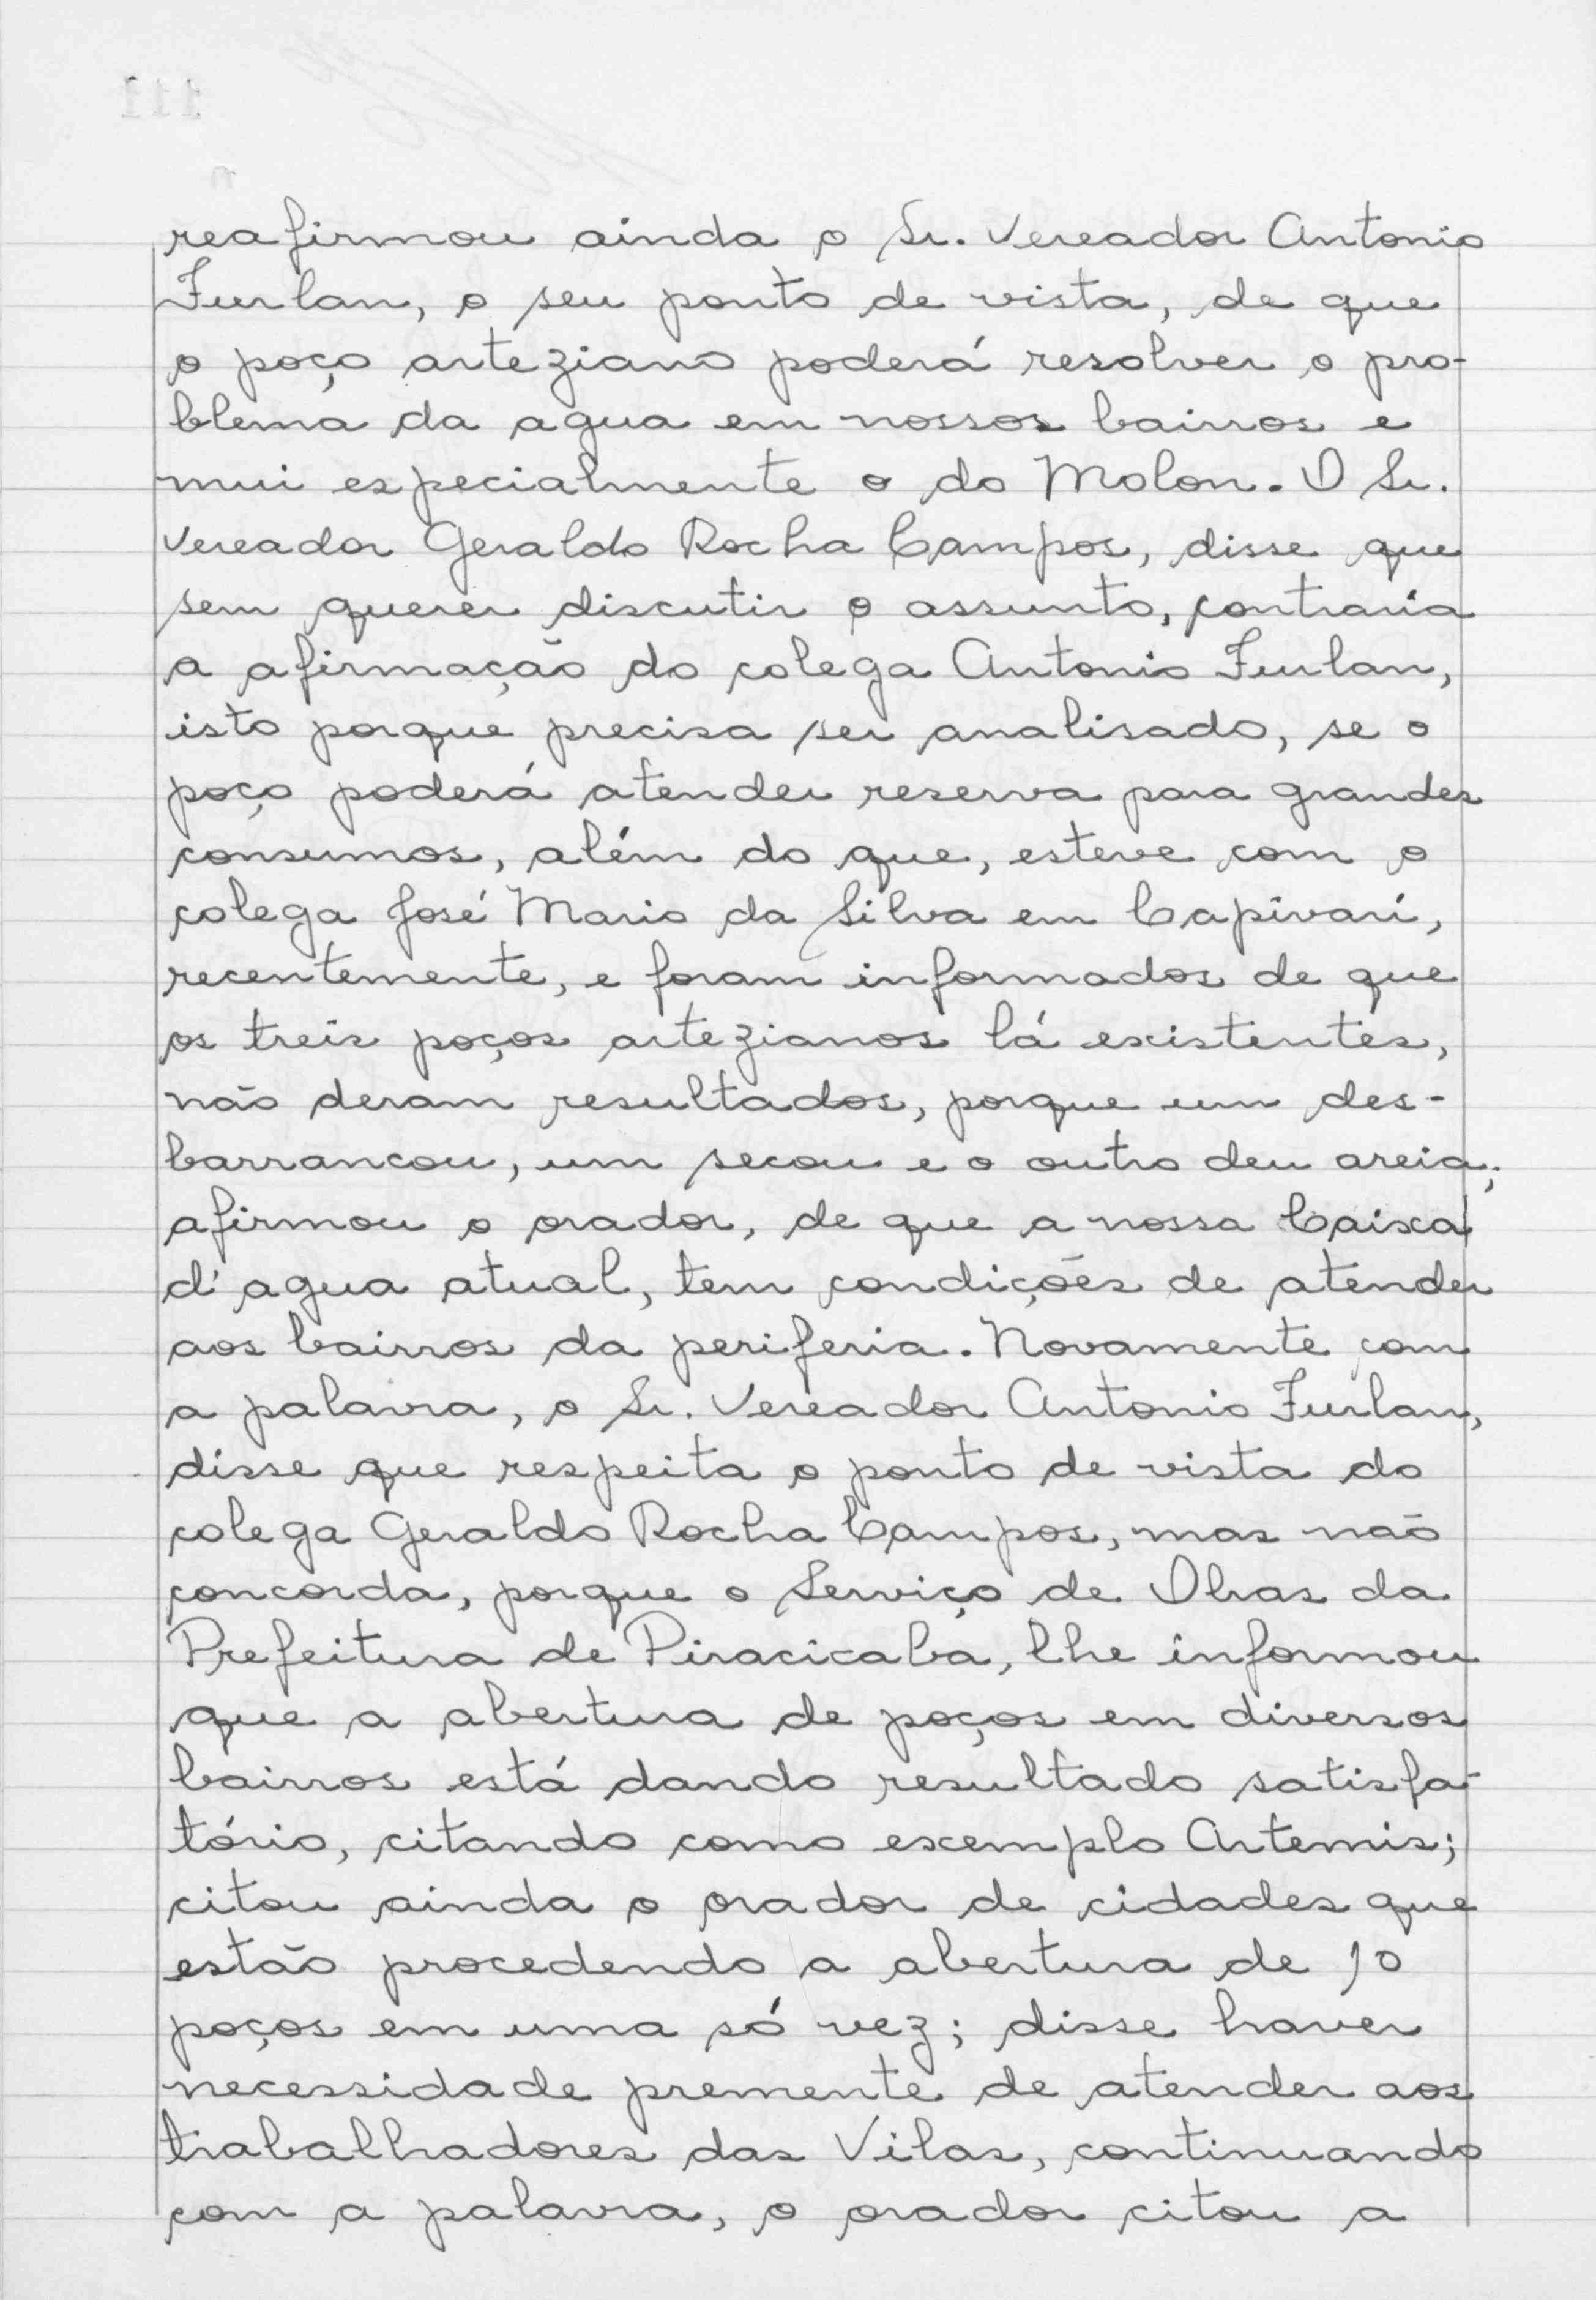 reafirmou ainda o Sr. Vereador Antonio
Furlan, o seu ponto de vista, de que
o poço arteziano poderá resolver o pro-
blema da agua em nossos bairros e
mui especialmente o do Molon. O Sr.
Vereador Geraldo Rocha Campos, disse que
sem querer discutir o assunto, contraria
a afirmação do colega Antonio Furlan,
isto porque precisa ser analisado, se o
poço poderá atender reserva para grandes
consumos, além do que, esteve com o
colega José Mario da Silva em Capivarí,
recentemente, e foram informados de que
os treis poços artezianos lá existentes,
não deram resultados, porque um des-
barrancou, um secou e o outro deu areia;
afirmou o orador, de que a nossa Caixa
d'agua atual, tem condições de atender
aos bairros da periferia. Novamente com
a palavra, o Sr. Vereador Antonio Furlan,
disse que respeita o ponto de vista do
colega Geraldo Rocha Campos, mas não
concorda, porque o Serviço de Obras da
Prefeitura de Piracicaba, lhe informou
que a abertura de poços em diversos
bairros está dando resultado satisfa-
tório, citando como exemplo Artemis;
citou ainda o orador de cidades que
estão procedendo a abertura de 10
poços em uma só vez; disse haver
necessidade premente de atender aos
trabalhadores das Vilas, continuando
com a palavra, o orador citou a